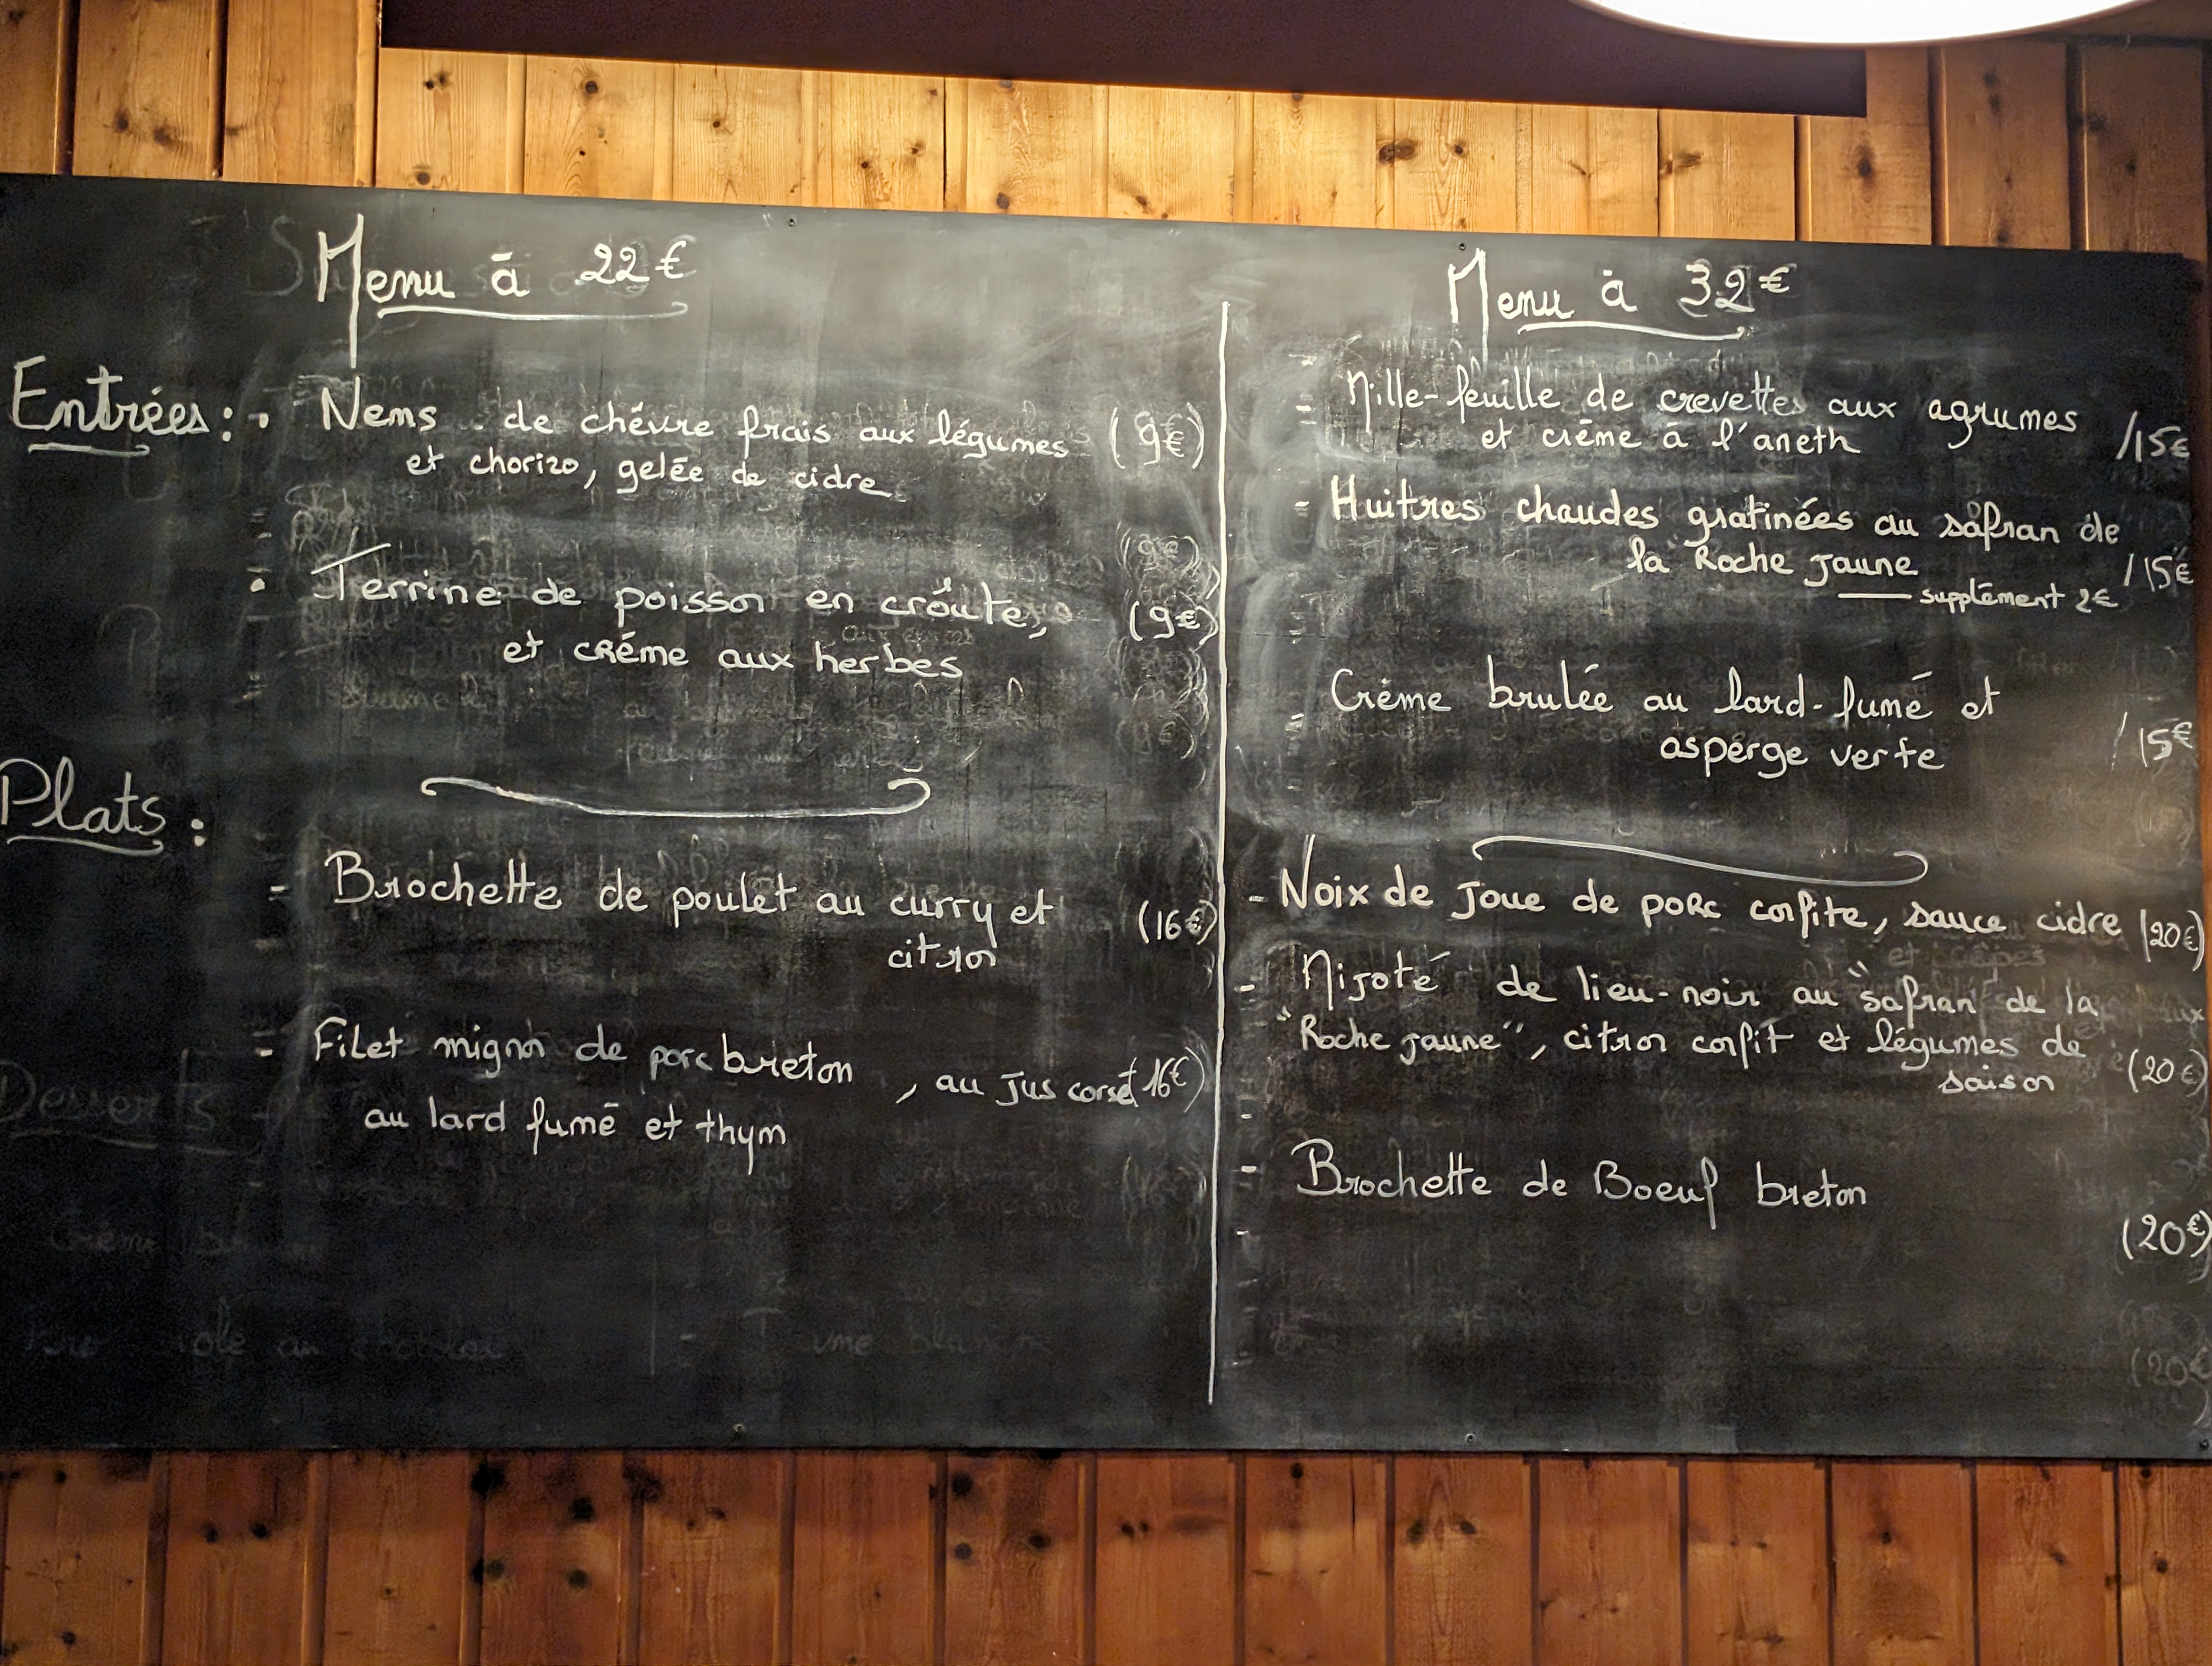 Menu à 22€
Entrées :
• Nems de chévre frais aux légumes (9€)
et chorizo, gelée de cidre
• Terrine de poisson en croûte, (9€)
et créme aux herbes
Plats :
- Brochette de poulet au curry et (16€)
citron
- Filet mignon de porc breton, au jus corsé (16€)
au lard fumé et thym
Desserts
Menu à 32€
- Mille-feuille de crevettes aux agrumes /15€
et créme à l'aneth
- Huitres chaudes gratinées au safran de
la Roche Jaune /15€
supplément 2€
- Crème brulée au lard-fumé et
asperge verte /15€
- Noix de joue de porc confite, sauce cidre (20€)
- Mijoté de lieu-noir au "safran de la
"Roche jaune", citron confit et légumes de
saison (20€)
- Brochette de Boeuf breton
(20€)